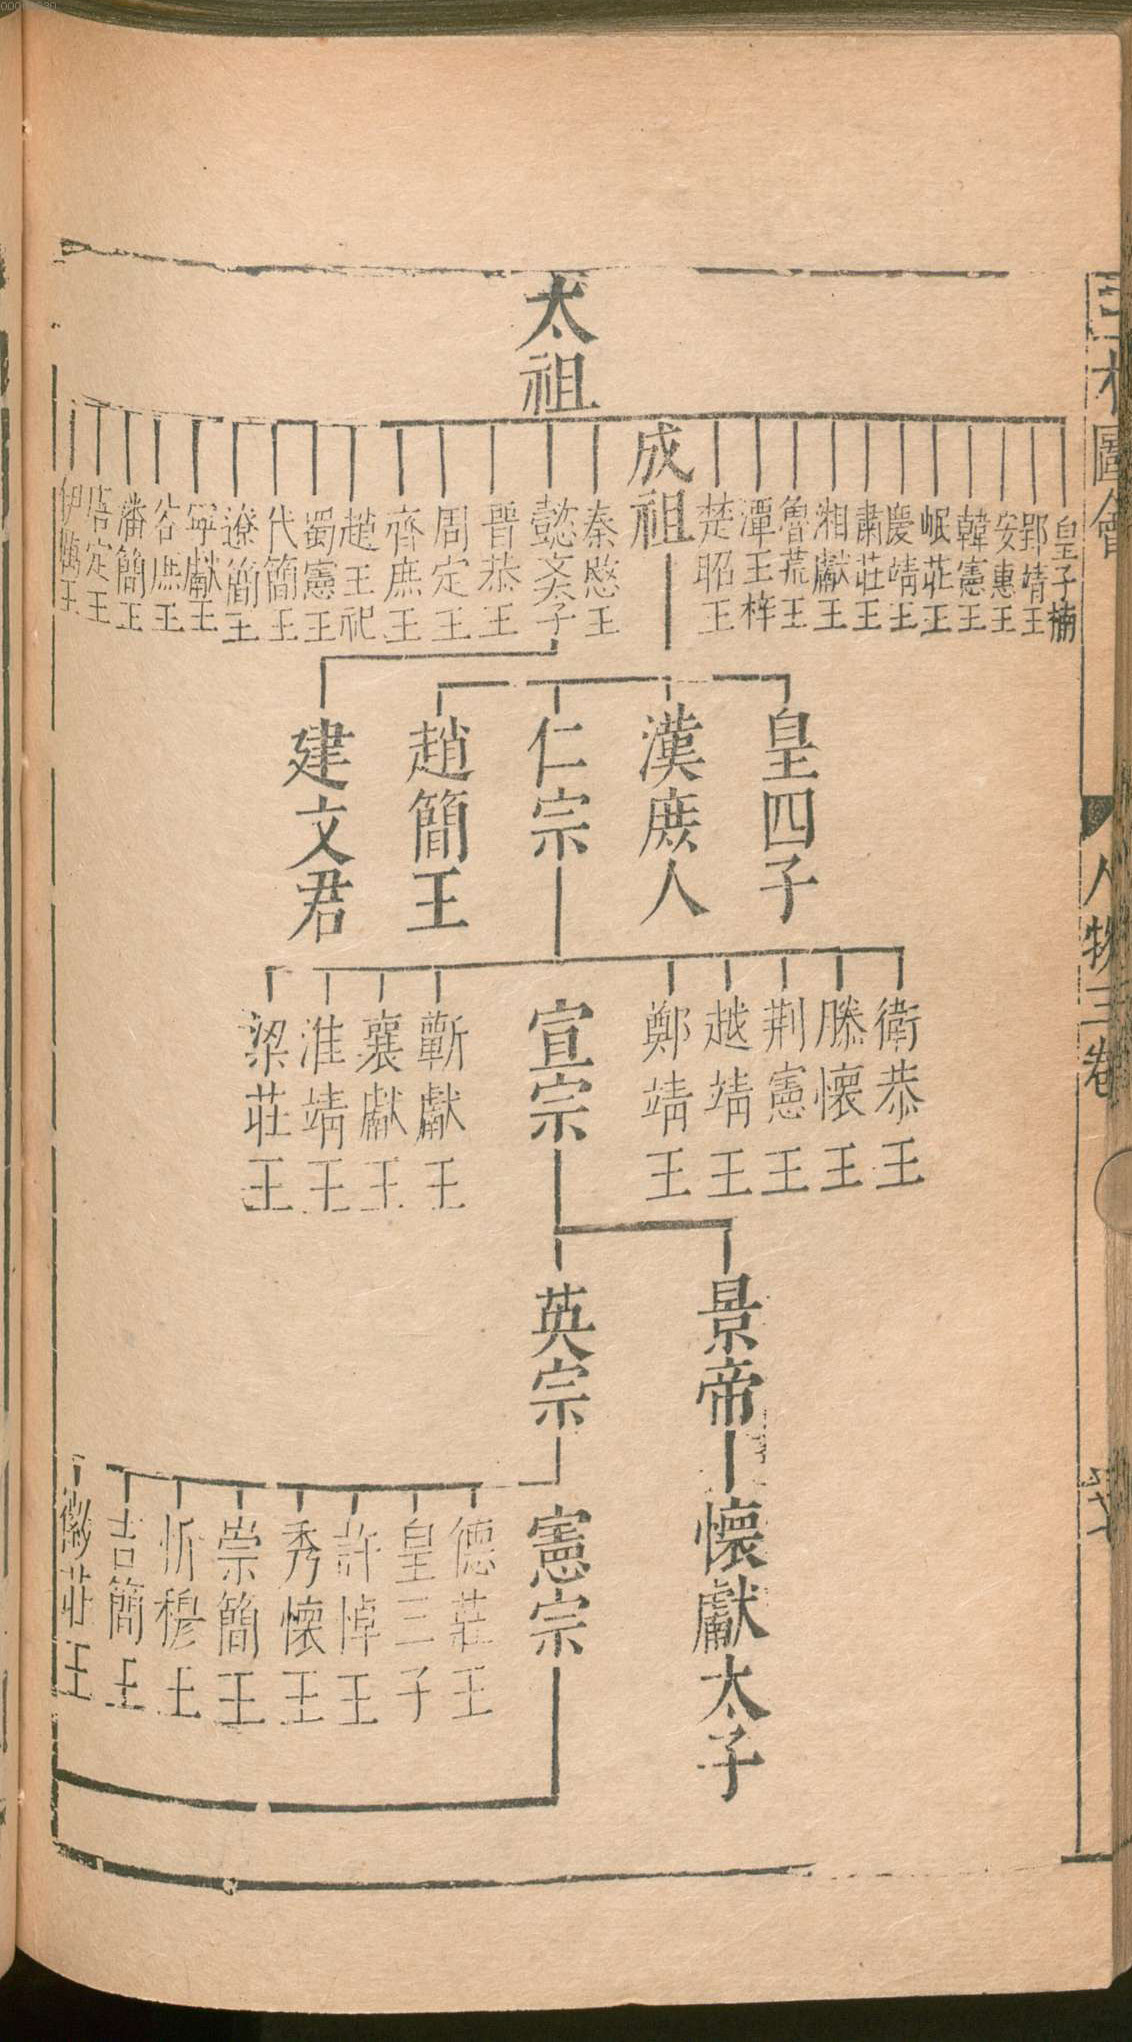 三才圖會
人物三卷
太祖
皇子楠
郢靖王
安惠王
韓憲王
岷莊王
慶靖王
肅莊王
湘獻王
魯荒王
潭王梓
楚昭王
成祖
秦愍王
懿文太子
晋恭王
周定王
齊庶王
趙王杞
蜀憲王
代簡王
遼簡王
寧獻王
谷庶王
潘簡王
唐定王
伊厲王
皇四子
漢庶人
仁宗
趙簡王
建文君
衛恭王
滕懷王
荆憲王
越靖王
鄭靖王
宣宗
蘄獻王
襄獻王
淮靖王
梁莊王
景帝
懷獻太子
英宗
憲宗
德莊王
皇三子
許悼王
秀懷王
崇簡王
忻穆王
吉簡王
徽莊王